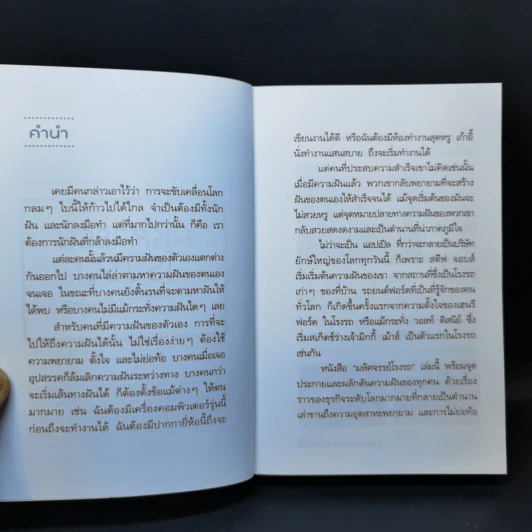 คำนำ
เคยมีคนกล่าวเอาไว้ว่า การจะขับเคลื่อนโลก
กลมๆ ใบนี้ให้ก้าวไปได้ไกล จำเป็นต้องมีทั้งนัก
ฝัน และนักลงมือทำ แต่ที่มากไปกว่านั้น ก็คือ เรา
ต้องการนักฝันที่กล้าลงมือทำ
แต่ละคนนั้นล้วนมีความฝันของตัวเองแตกต่าง
กันออกไป บางคนไล่ล่าตามหาความฝันของตนเอง
จนเจอ ในขณะที่บางคนยังดิ้นรนที่จะตามหาฝันให้
ได้พบ หรือบางคนไม่มีแม้กระทั่งความฝันใดๆ เลย
สำหรับคนที่มีความฝันของตัวเอง การที่จะ
ไปให้ถึงความฝันได้นั้น ไม่ใช่เรื่องง่ายๆ ต้องใช้
ความพยายาม ตั้งใจ และไม่ย่อท้อ บางคนเมื่อเจอ
อุปสรรคก็ล้มเลิกความฝันระหว่างทาง บางคนกว่า
จะเริ่มเส้นทางฝันได้ ก็ต้องตั้งข้อแม้ต่างๆ ให้ตน
มากมาย เช่น ฉันต้องมีเครื่องคอมพิวเตอร์รุ่นนี้
ก่อนถึงจะทำงานได้ ฉันต้องมีปากกายี่ห้อนี้ถึงจะ
เขียนงานได้ดี หรือฉันต้องมีห้องทำงานสุดหรู เก้าอี้
นั่งทำงานแสนสบาย ถึงจะเริ่มทำงานได้
แต่คนที่ประสบความสำเร็จเขาไม่คิดเช่นนั้น
เมื่อมีความฝันแล้ว พวกเขากลับพยายามที่จะสร้าง
ฝันของตนเองให้สำเร็จจนได้ แม้จุดเริ่มต้นของมันจะ
ไม่สวยหรู แต่จุดหมายปลายทางความฝันของพวกเขา
กลับสวยสดงดงามและเป็นตำนานที่น่าภาคภูมิใจ
ไม่ว่าจะเป็น แอปเปิล ที่กว่าจะกลายเป็นบริษัท
ยักษ์ใหญ่ของโลกทุกวันนี้ ก็เพราะ สตีฟ จอบส์
เริ่มเริ่มต้นความฝันของเขา จากสถานที่ซึ่งเป็นโรงรถ
เก่าๆ ของที่บ้าน รถยนต์ฟอร์ดที่เป็นที่รู้จักของคน
ทั่วโลก ก็เกิดขึ้นครั้งแรกจากความตั้งใจของเฮนรี่
ฟอร์ด ในโรงรถ หรือแม้กระทั่ง วอลท์ ดิสนีย์ ซึ่ง
เริ่มสเก็ตช์ร่างเจ้ามิกกี้ เม้าส์ เป็นตัวแรกในโรงรถ
เช่นกัน
หนังสือ "มหัศจรรย์โรงรถ" เล่มนี้ พร้อมจุด
ประกายและผลักดันความฝันของทุกคน ด้วยเรื่อง
ราวของธุรกิจระดับโลกมากมายที่กลายเป็นตำนาน
เล่าขานถึงความอุตสาหะพยายาม และการไม่ย่อท้อ